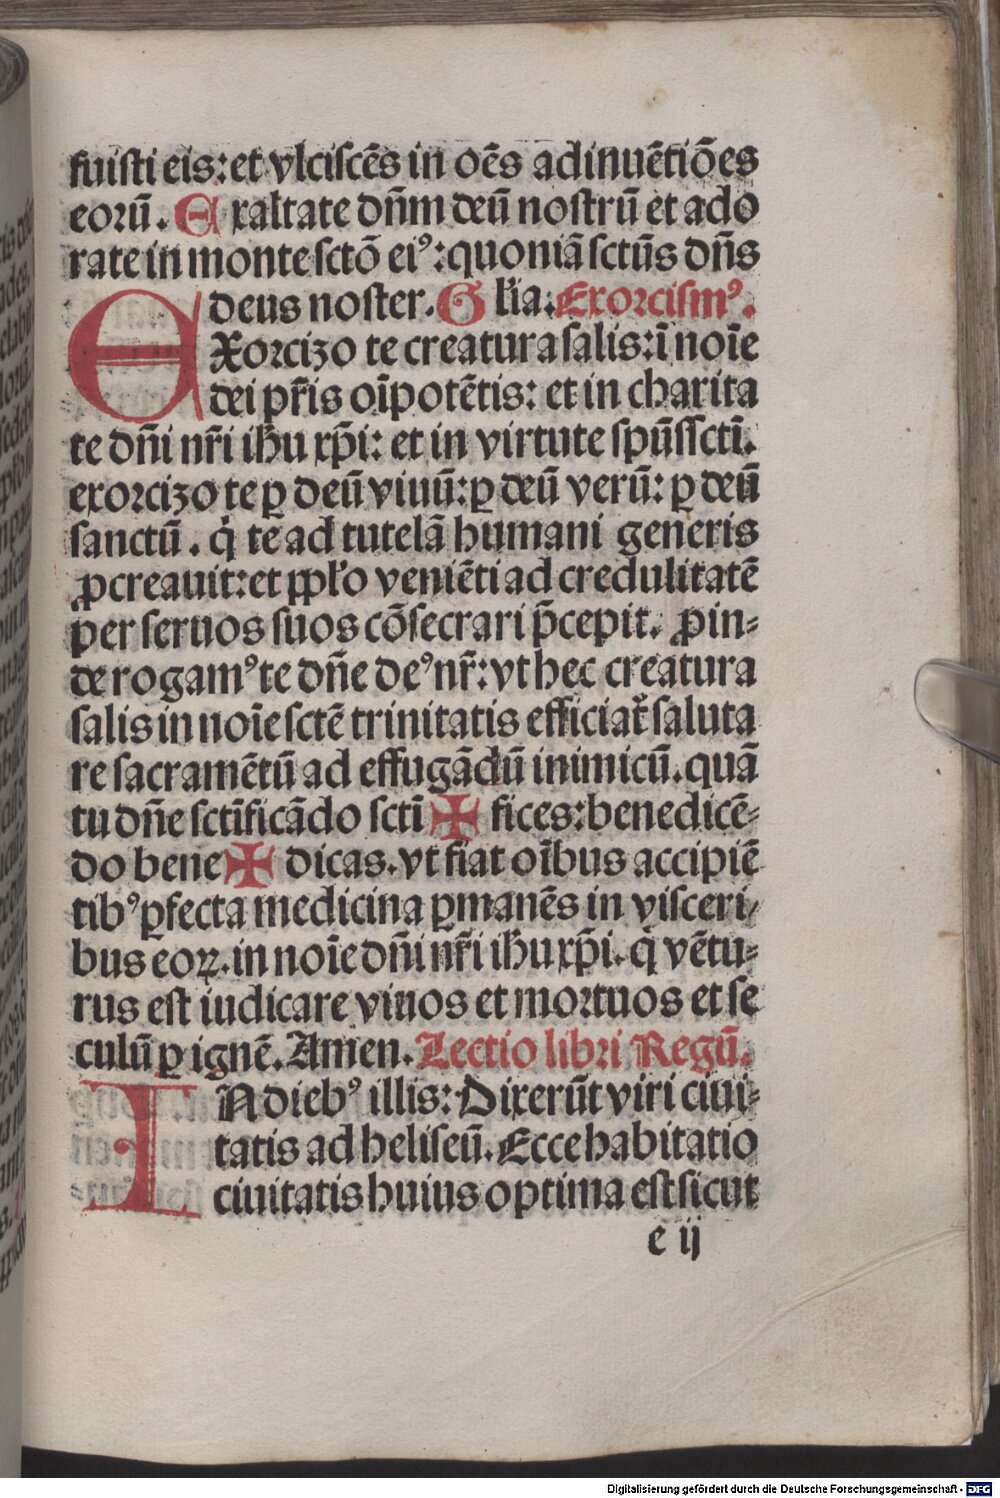 fuisti eis: et vlciscēs in oēs adinuētiōes
eorū. Exaltate dn̄m deū nostrū et ado
rate in monte sctō ei⁹: quoniā sctūs dn̄s
deus noster. Gl'ia. Exorcism⁹.
EXorcizo te creatura salis: ī noīe
dei pr̄is oīpotētis: et in charita
te dn̄i nr̄i ihu xp̄i: et in virtute spūssctī.
exorcizo te ꝑ deū viuū: ꝑ deū verū: ꝑ deū
sanctū. q̇ te ad tutelā humani generis
ꝓcreauit: et pplo venīēti ad credulitatē
per seruos suos cōsecrari p̄cepit. ꝓin-
de rogam⁹ te dn̄e de⁹ nr̄: vt hec creatura
salis in noīe sctē trinitatis efficiat̄ saluta
re sacramētū ad effugādū inimicū. quā
tu dn̄e sctīficādo sctī ✠ fices: benedicē-
do bene ✠ dicas. vt fiat oībus accipiē
tib⁹ ꝑfecta medicina ꝑmanēs in visceri-
bus eoꝝ. in noīe dn̄i nr̄i ihu xp̄i. q̇ vētu-
rus est iudicare viuos et mortuos et se
culū ꝑ ignē. Amen. Lectio libri Regū.
IN dieb⁹ illis: Dixerūt viri ciui-
tatis ad heliseū. Ecce habitatio
ciuitatis huius optima est sicut
e ij
Digitalisierung gefördert durch die Deutsche Forschungsgemeinschaft - DFG